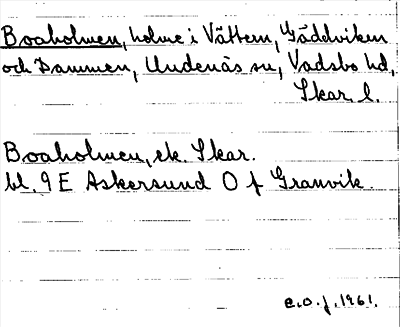 Boaholmen, holme i Vättern, Gäddviken
och Dammen, Undenäs sn, Vadsbo hd,
Skar. l.
Boaholmen, ek. Skar.
bl. 9 E Askersund O f Granvik.
e.o.f. 1961.